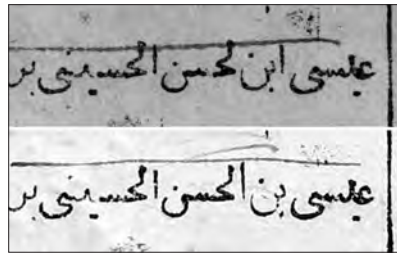 عيسى ابن لحسن الحسينى بر
عيسى بن الحسن الحسينى بر